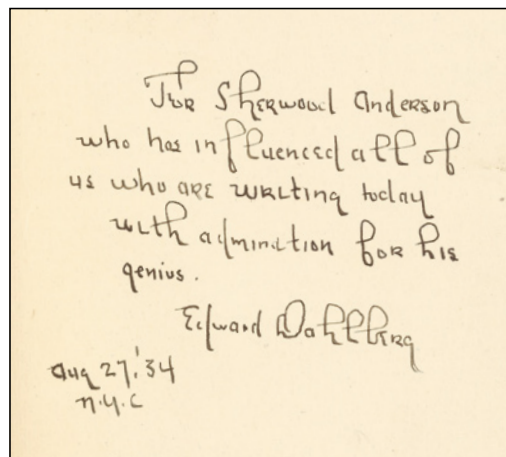 For Sherwood Anderson
who has influenced all of
us who are writing today
with admiration for his
genius.
Edward Dahlberg
Aug 27, '34
N.Y.C